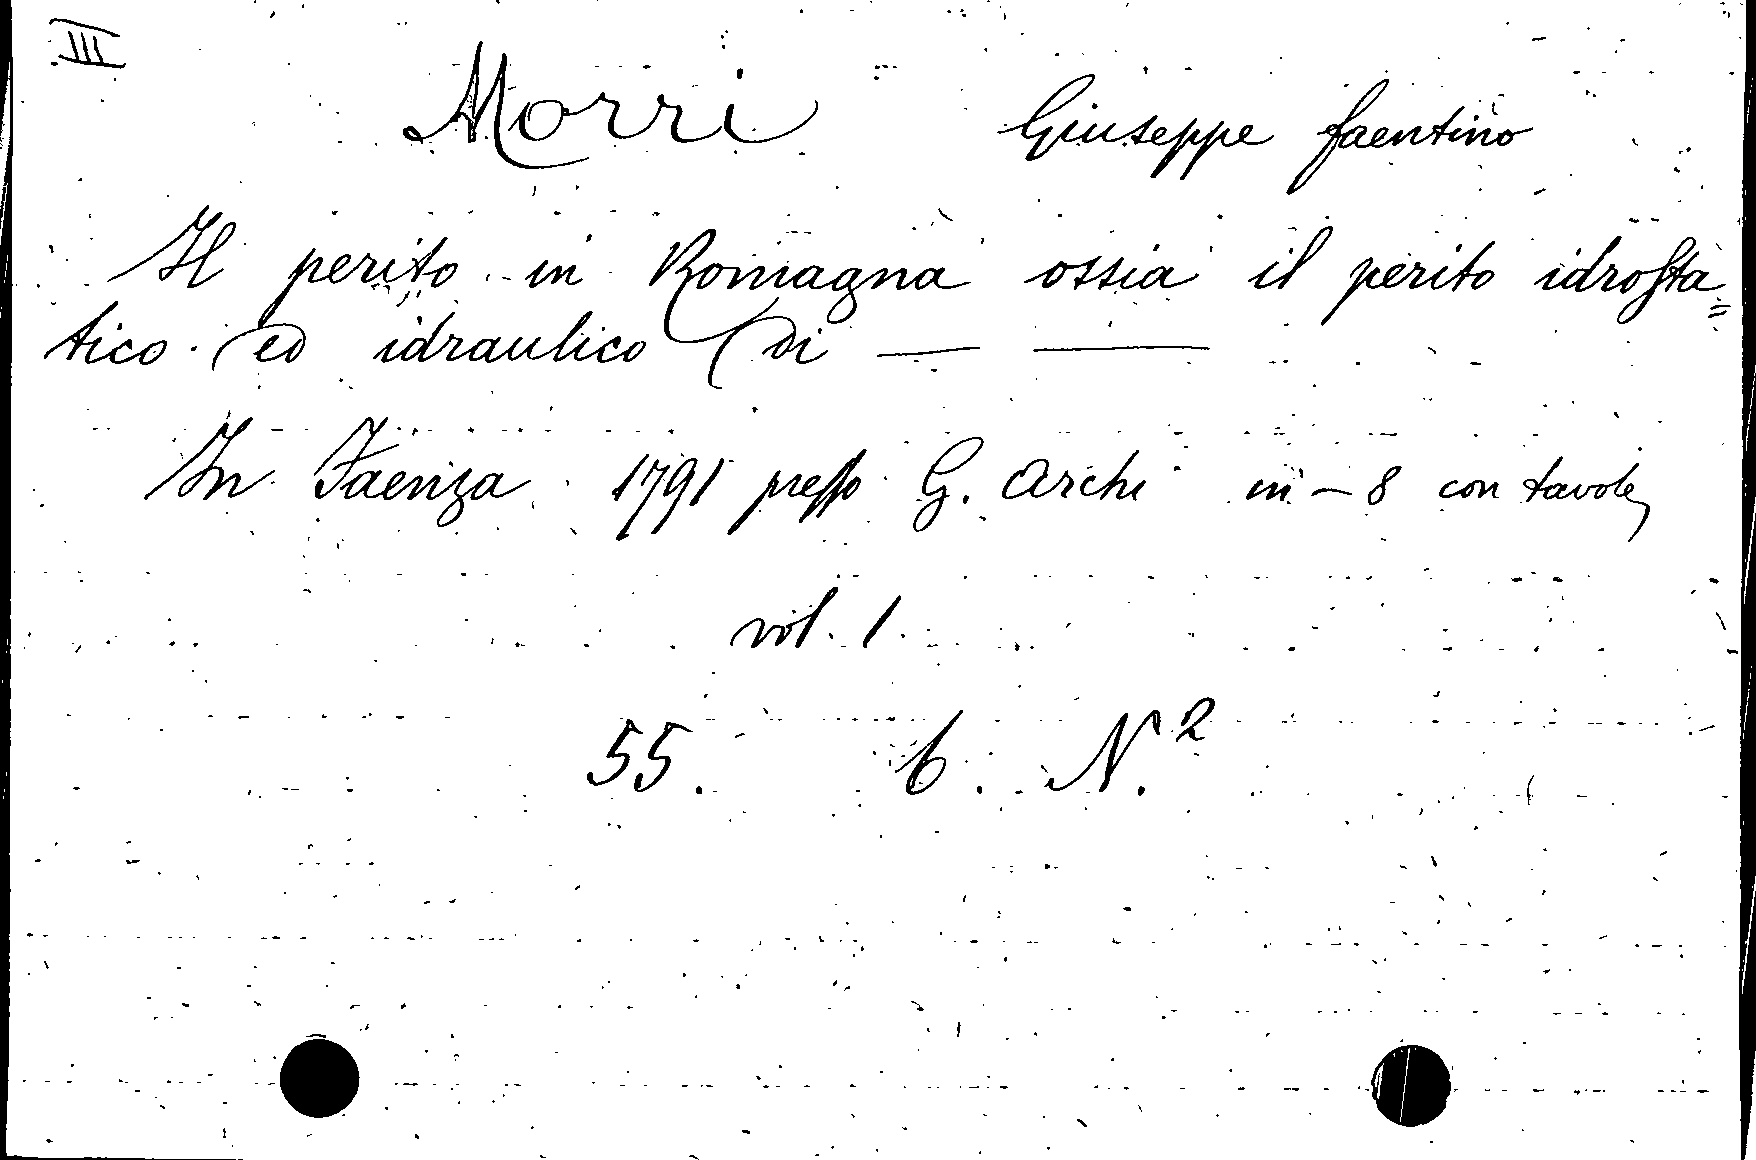 III
Morri Giuseppe faentino
Il perito in Romagna ossia il perito idrosta=
tico ed idraulico di — —
In Faenza 1791 presso G. Archi in-8 con tavole
vol. 1.
55. 6. N.2